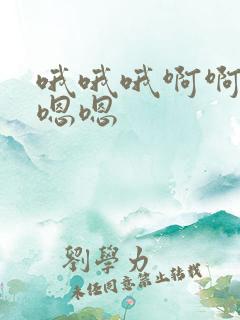 哦哦哦啊啊
嗯嗯
劉學力
未經同意禁止轉載